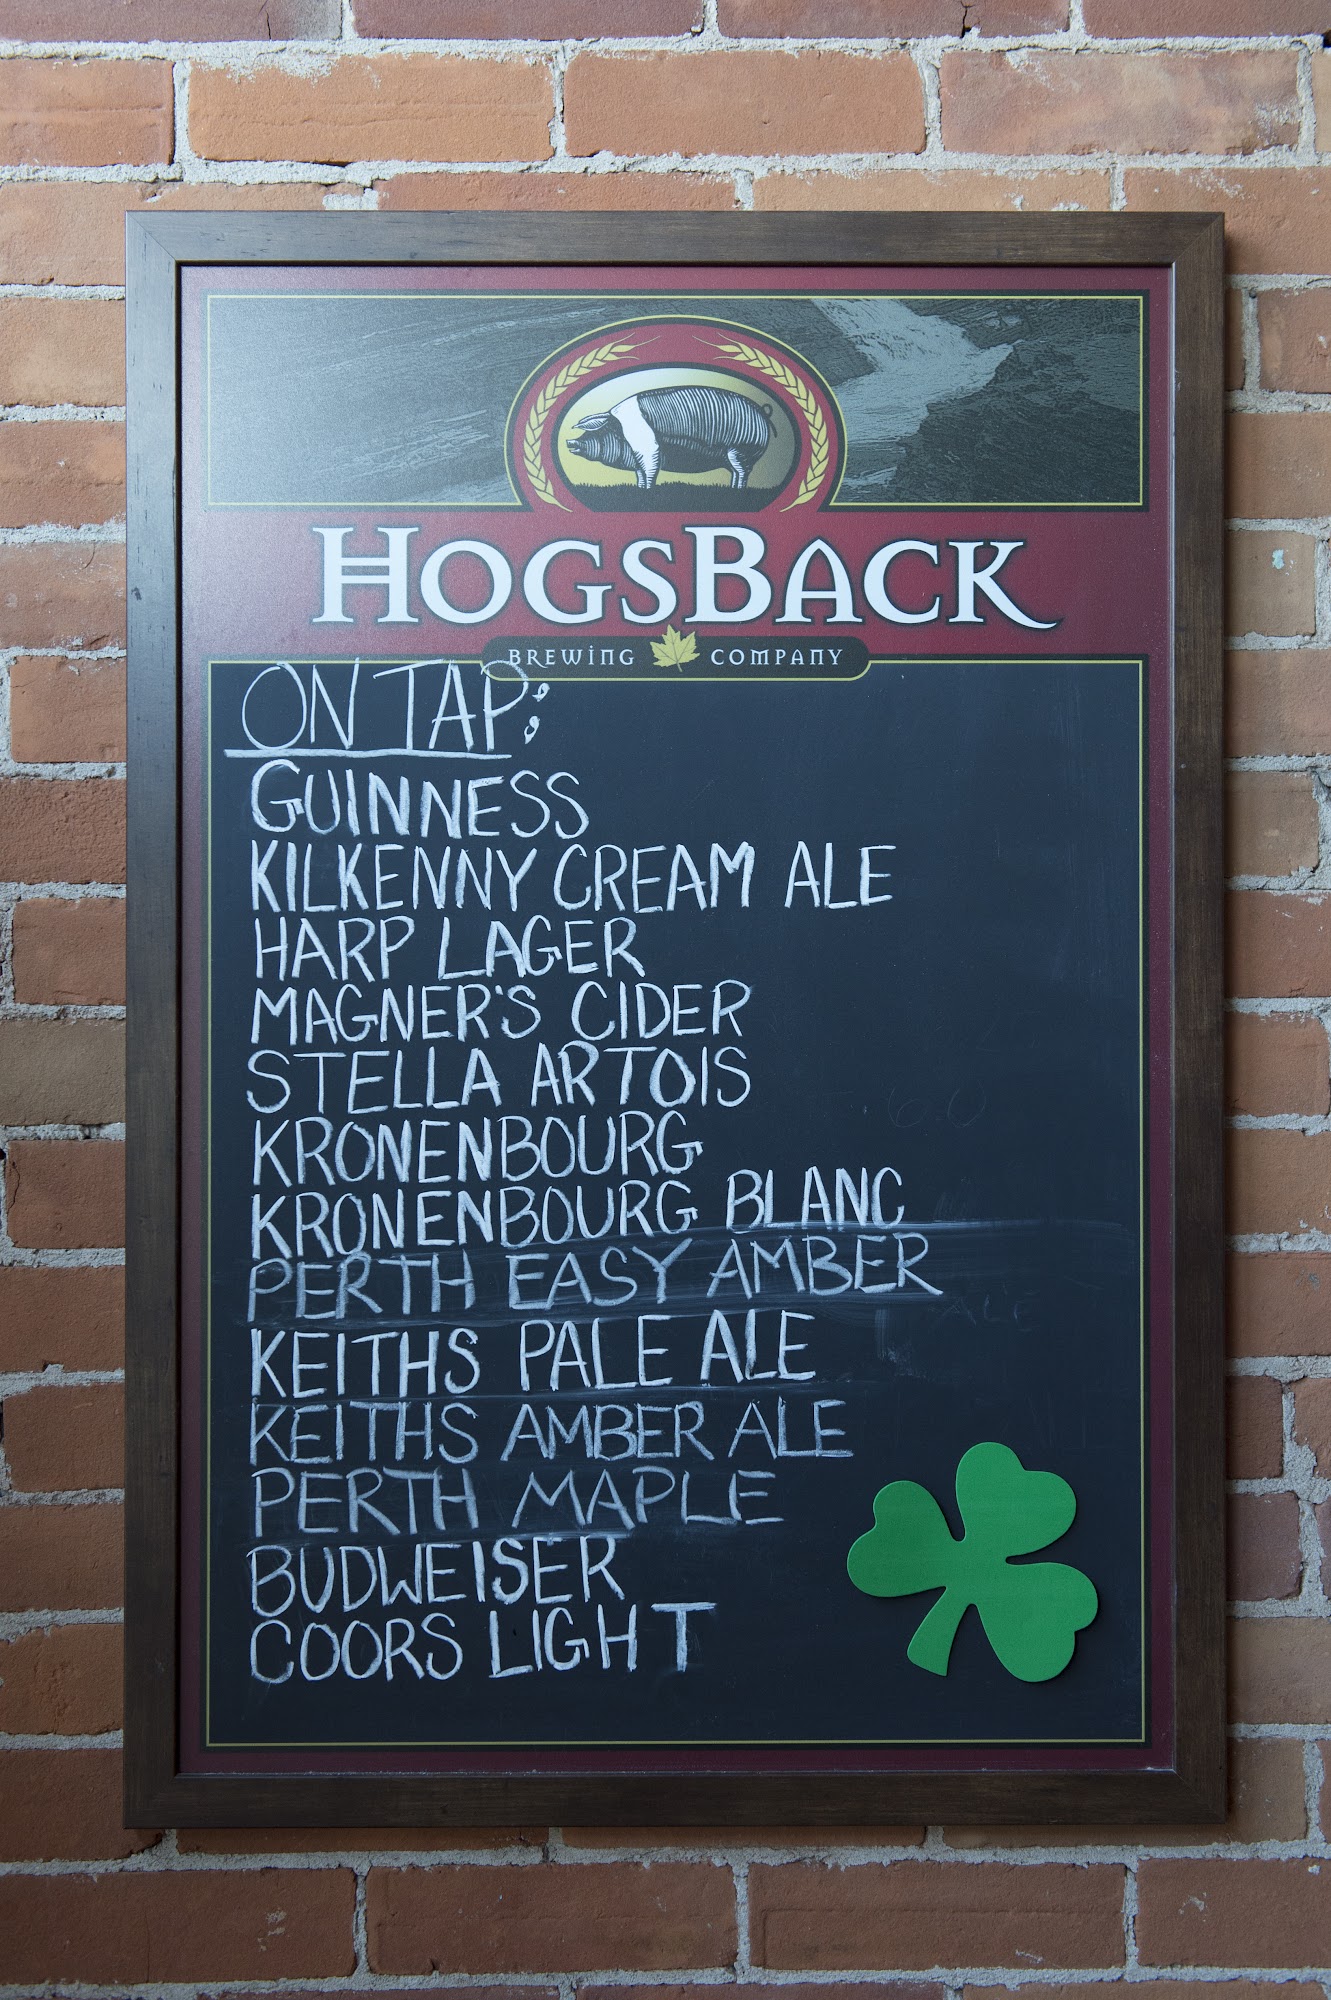 HOGSBACK
BREWING COMPANY
ON TAP:
GUINNESS
KILKENNY CREAM ALE
HARP LAGER
MAGNER'S CIDER
STELLA ARTOIS
KRONENBOURG
KRONENBOURG BLANC
PERTH EASY AMBER
ALE
KEITHS PALE ALE
KEITHS AMBER ALE
PERTH MAPLE
BUDWEISER
COORS LIGHT